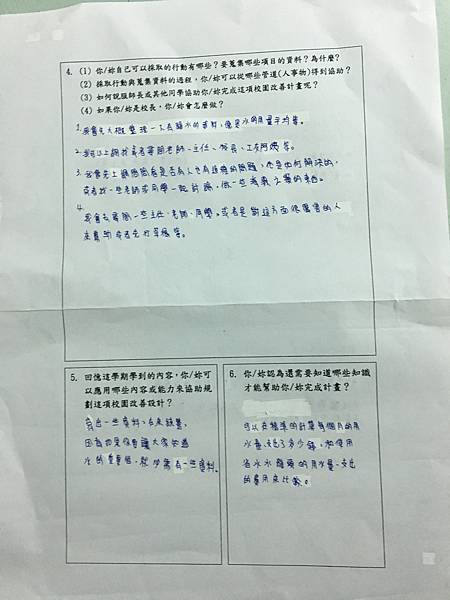 4. (1) 你/妳自己可以採取的行動有哪些？要蒐集哪些項目的資料？為什麼？
(2) 採取行動與蒐集資料的過程，你/妳可以從哪些管道(人事物)得到協助？
(3) 如何說服師長或其他同學協助你/妳完成這項校園改善計畫呢？
(4) 如果你/妳是校長，你/妳會怎麼做？
1. 我會先大概整理一下有關水的資料，像是水的用量平均等。
2. 我可以上網找或者專問老師、主任、校長、工友阿伯等。
3. 我會先上網問問看是否有人也有這樣的問題，他是如何解決的，
或者找一些老師或同學一起討論，做一些
4.
我會去專問一些主任、老師、同學，或者是對這方面很厲害的人
來幫助或者是打草稿等。
5. 回憶這學期學到的內容，你/妳可
以應用哪些內容或能力來協助規
劃這項校園改善設計？
一些資料
因為如果你要讓大家知道
水的重要性，就必需有一些資料。
6. 你/妳認為還需要知道哪些知識
才能幫助你/妳完成計畫？
可以在精準的計算每個月的用
水量、支出了多少錢，和使用
省水水龍頭的用水量、支出
的費用來比較。